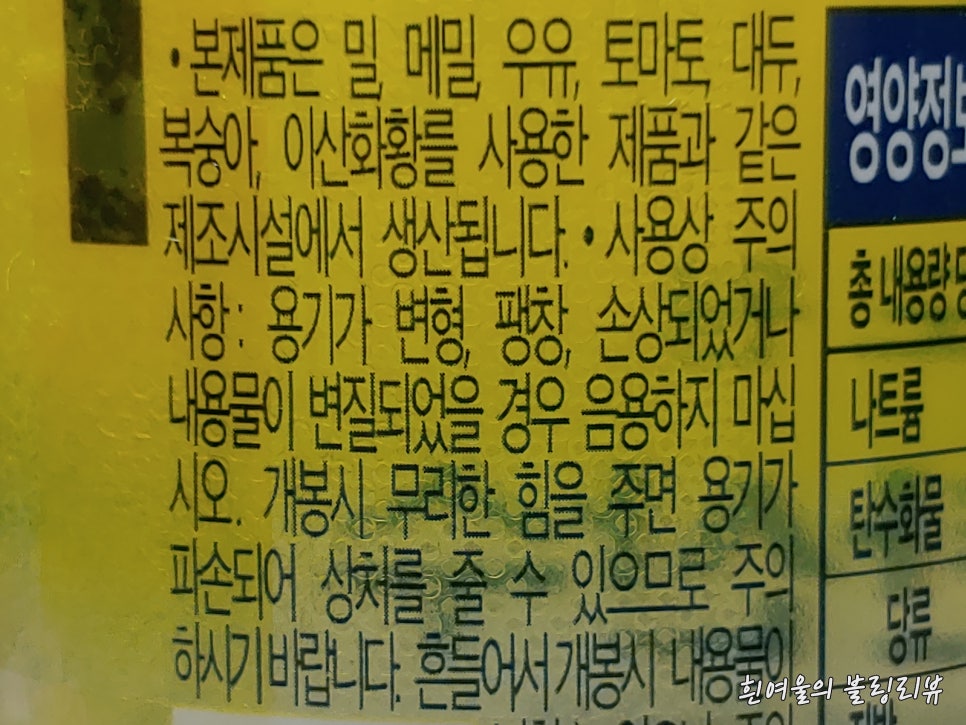 •본제품은 밀, 메밀, 우유, 토마토, 대두,
복숭아, 이산화황를 사용한 제품과 같은
제조시설에서 생산됩니다. •사용상 주의
사항: 용기가 변형, 팽창, 손상되었거나
내용물이 변질되었을 경우 음용하지 마십
시오. 개봉시 무리한 힘을 주면 용기가
파손되어 상처를 줄 수 있으므로 주의
하시기 바랍니다. 흔들어서 개봉시 내용물이
영양정보
총 내용량
나트륨
탄수화물
당류
흰여울의 블링리뷰